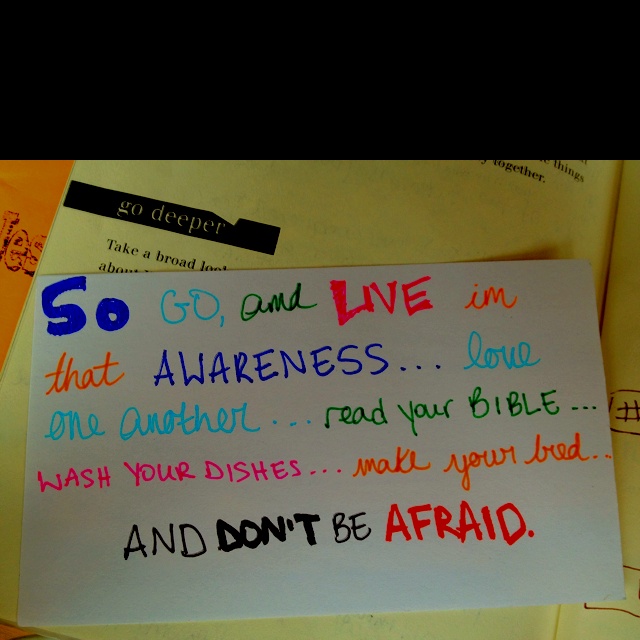 things
together.
go deeper
Take a broad look
about
So GO, and LIVE in
that AWARENESS... love
one another... read your BIBLE...
WASH YOUR DISHES... make your bed...
AND DON'T BE AFRAID.
#